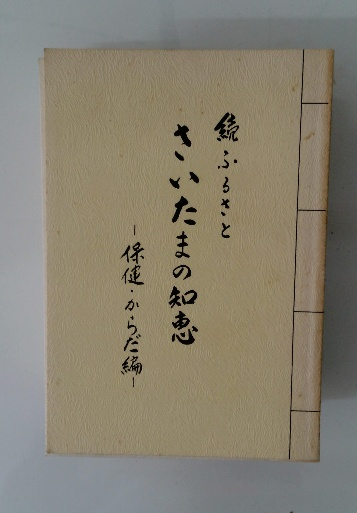 続ふるさと
さいたまの知恵
－保健・からだ編－